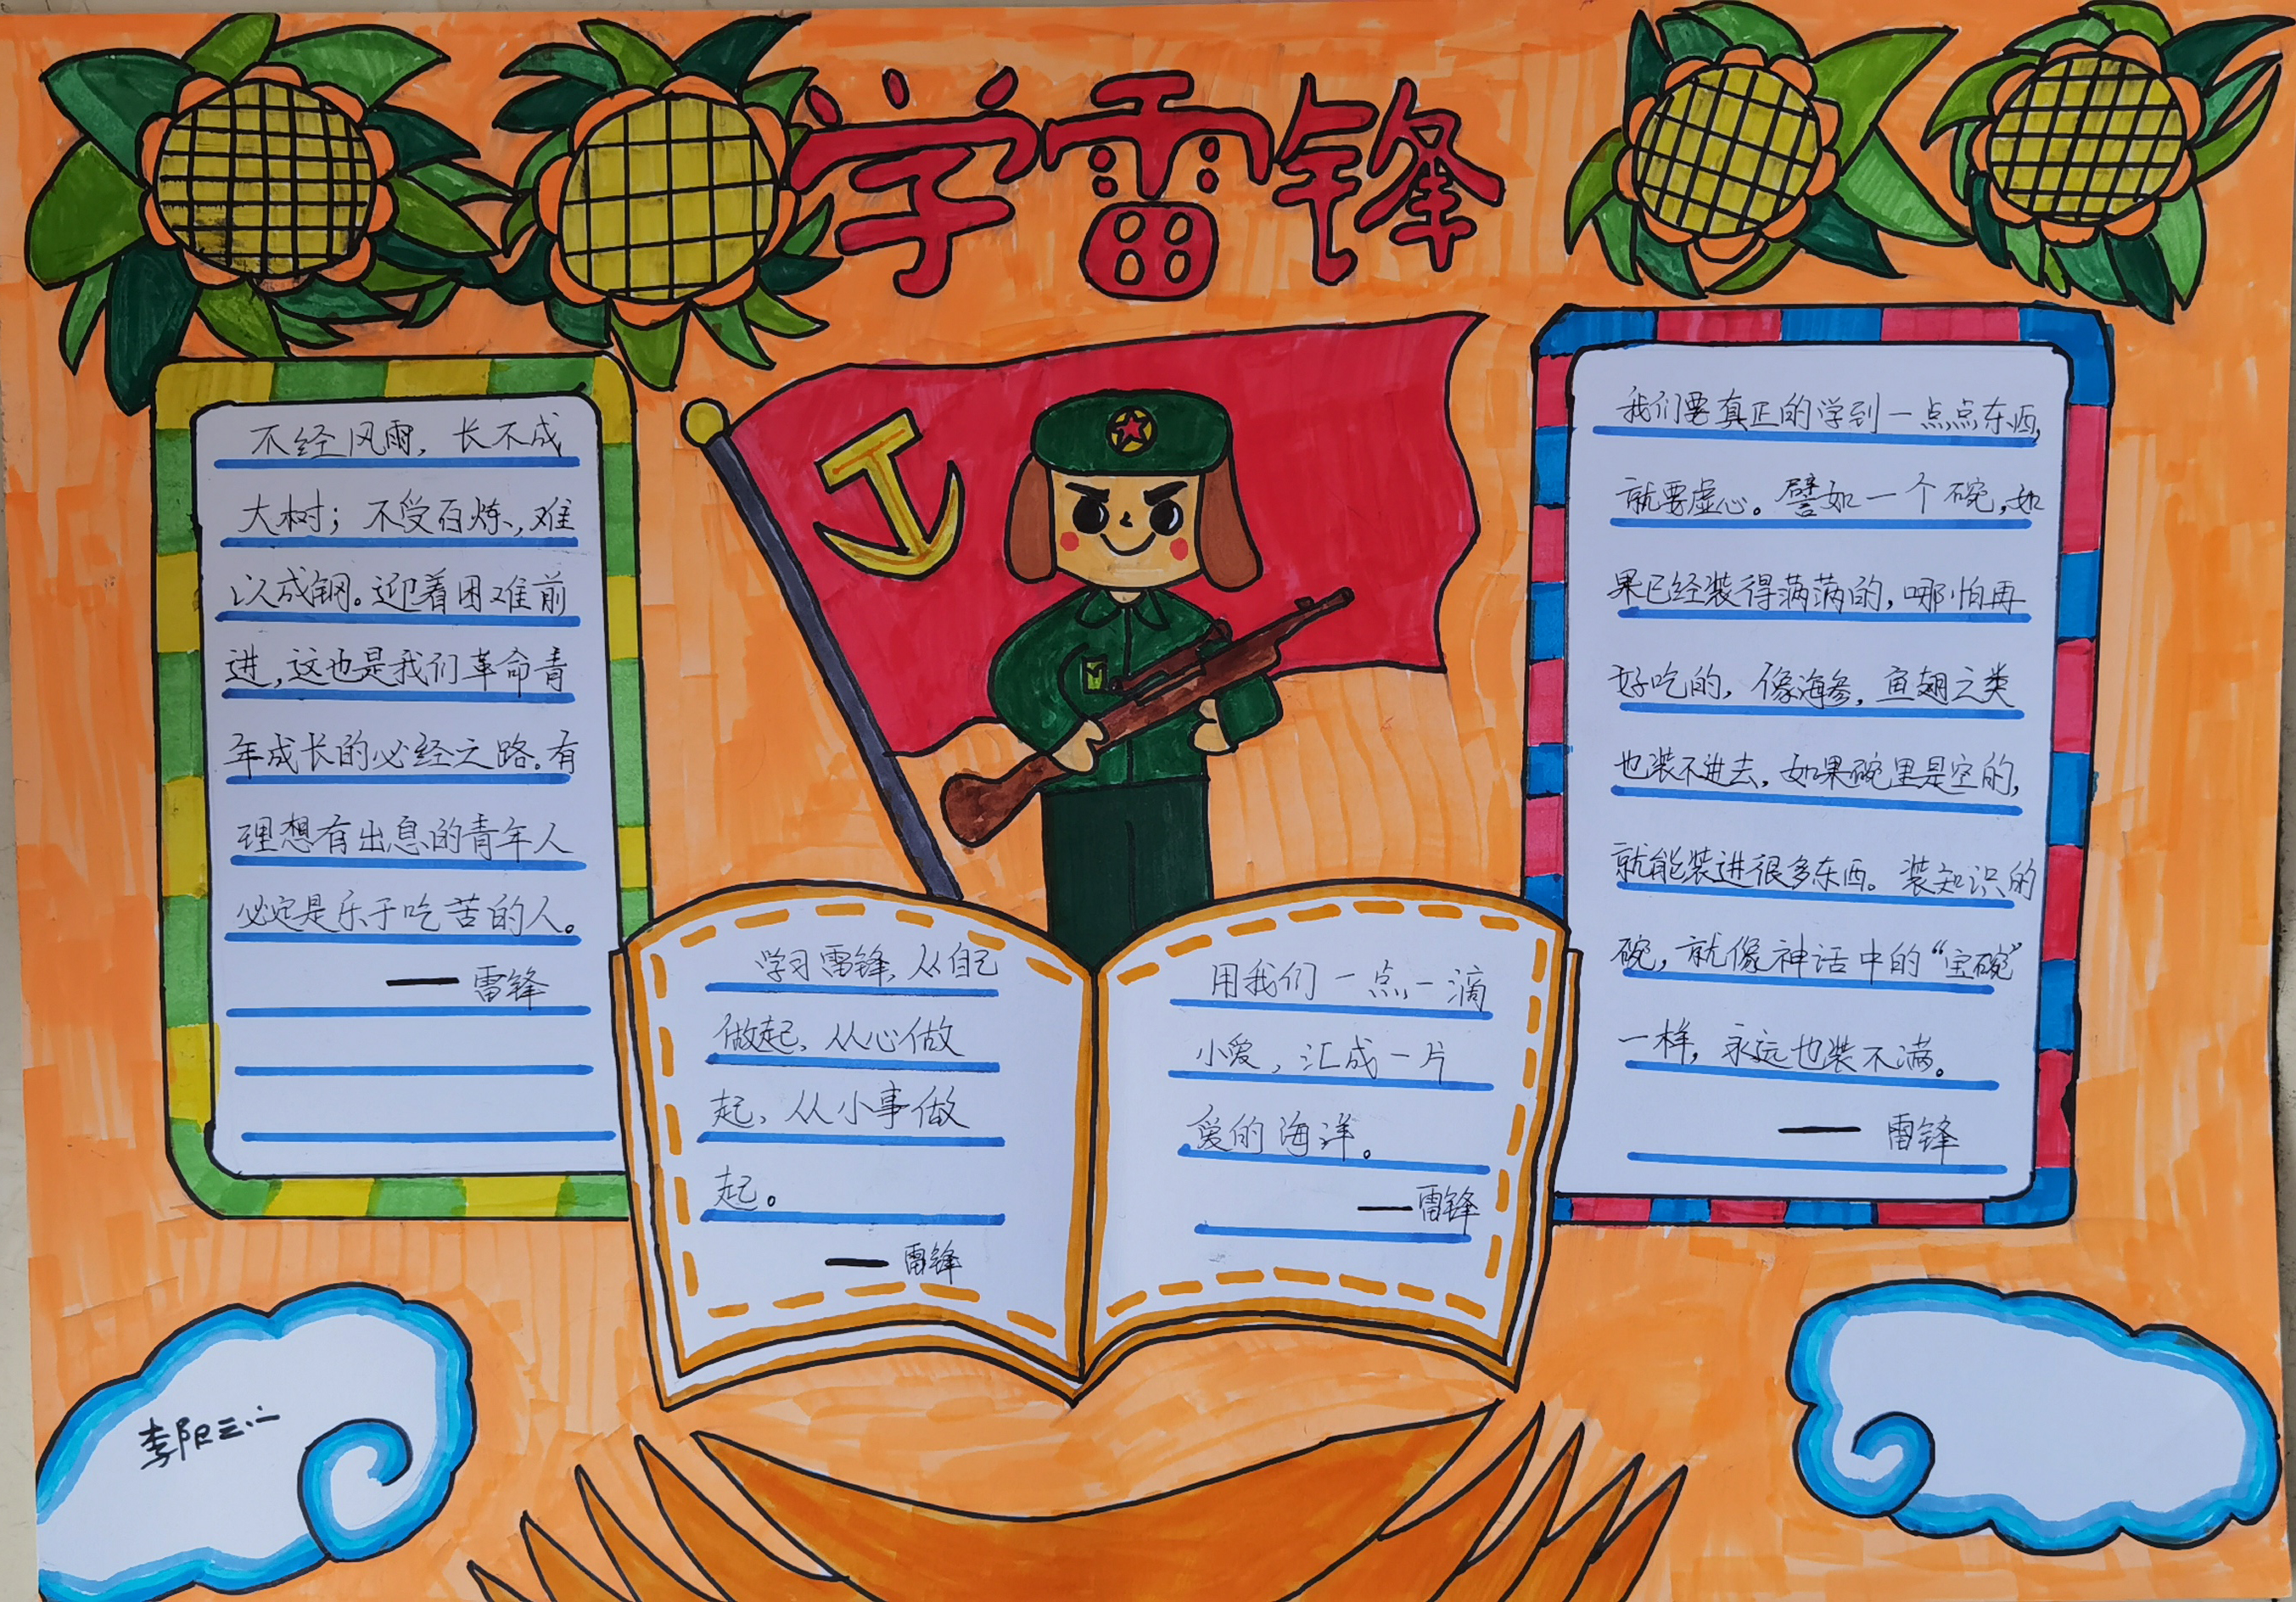 学雷锋
不经风雨，长不成
大树；不受百炼，难
以成钢。迎着困难前
进，这也是我们革命青
年成长的必经之路。有
理想有出息的青年人
必定是乐于吃苦的人。
— 雷锋
学习雷锋，从自己
做起、从心做
起、从小事做
起。
— 雷锋
用我们一点一滴
小爱，汇成一片
爱的海洋。
—雷锋
我们要真正的学到一点点东西，
就要虚心。譬如一个碗，如
果已经装得满满的，哪怕再
好吃的，像海参，鱼翅之类
也装不进去，如果碗里是空的，
就能装进很多东西。装知识的
碗，就像神话中的“宝碗”
一样，永远也装不满。
— 雷锋